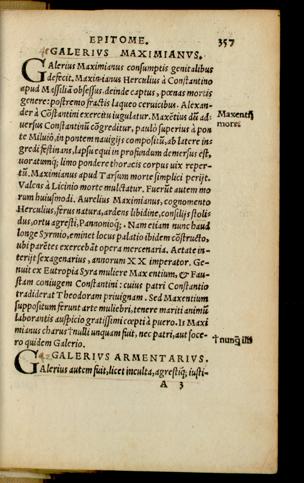 EPITOME. 357
GALERIVS MAXIMIANVS.
Galerius Maximianus consumptis genitalibus
defecit. Maximianus Herculius à Constantino
apud Messiliã obsessus, deinde captus, pœnas mortis
genere: postremo fractis laqueo ceruicibus. Alexan-
der à Cõstantini exercitu iugulatur. Maxẽtius dũ ad
uersus Constantinũ cõgreditur, paulò superius à pon
te Miluio, in pontem nauigijs compositũ, ab latere in-
gredi festinans, lapsu equi in profundum demersus est,
uoratumq; limo pondere thoracis corpus uix reper-
tũ. Maximianus apud Tarsum morte simplici perijt.
Valens à Licinio morte mulctatur. Fuerũt autem mo
rum huiusmodi. Aurelius Maximianus, cognomento
Herculius, ferus natura, ardens libidine, consilijs stoli
dus, ortu agresti, Pannonioq;. Nam etiam nunc haud
longe Syrmio, eminet locus palatio ibidem cõstructo,
ubi parẽtes exercebãt opera mercenaria. Aetate in-
terijt sexagenarius, annorum XX imperator. Ge-
nuit ex Eutropia Syra muliere Maxentium, & Fau-
stam coniugem Constantini: cuius patri Constantio
tradiderat Theodoram priuignam. Sed Maxentium
suppositum ferunt arte muliebri, tenere mariti animũ
laborantis auspicio gratissimi cœpti à puero. Is Maxi
mianus charus † nulli unquam fuit, nec patri, aut soce-
ro quidem Galerio.
GALERIVS ARMENTARIVS.
Galerius autem fuit, licet inculta, agrestiq; iusti-
A 3
Maxentij
mores
† nunq̃ illi